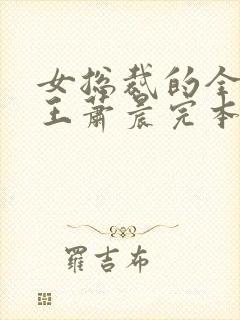 女总裁的全
王萧晨完本
羅吉布